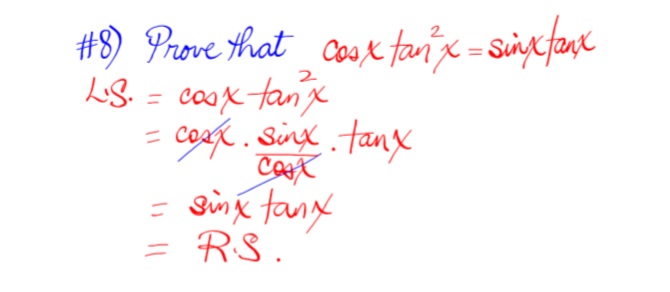 #8) Prove that cosx tan²x = sinx tanx
L.S. = cosx tan²x
= cosx . sinx/cosx . tanx
= sinx tanx
= R.S.